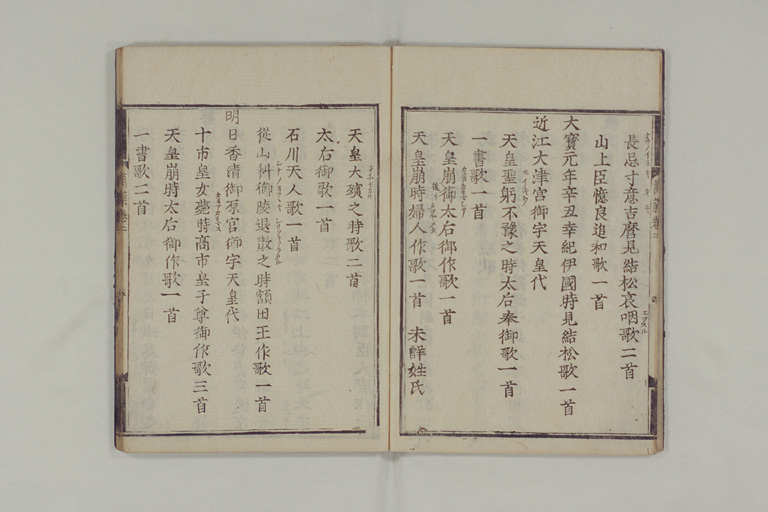 長忌寸意吉麿見結松哀咽歌二首
山上臣憶良追和歌一首
大寶元年辛丑幸紀伊國時見結松歌一首
近江大津宮御宇天皇代
天皇聖躬不豫之時太后奉御歌一首
一書歌一首
天皇崩御太右御作歌一首
天皇崩時婦人作歌一首 未詳姓氏
天皇大殯之時歌二首
太右御歌一首
石川夫人歌一首
從山科御陵退散之時額田王作歌一首
明日香清御原宮御宇天皇代
十市皇女薨時高市皇子尊御作歌三首
天皇崩時太后御作歌一首
一書歌二首